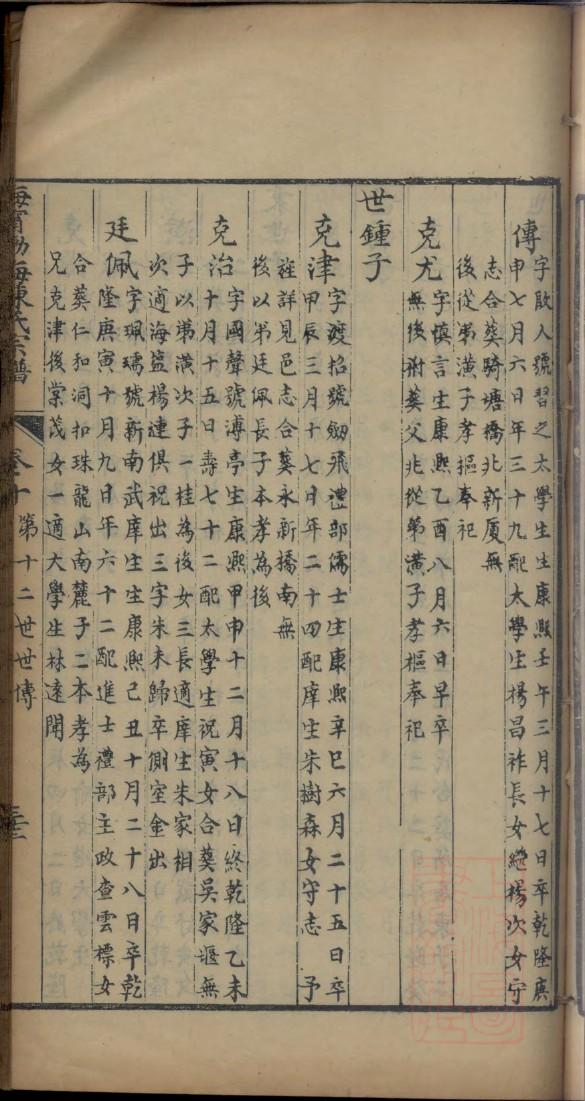 傳字啟人號習之太學生生康熙壬午三月十七日卒乾隆庚
申七月六日年三十九配太學生楊昌祚長女繼楊次女守
志合葬騎塘橋北新厦無
後從弟潢子孝樞奉祀
克尤字慎言生康熙乙酉八月六日早卒
無後附葬父兆從弟潢子孝樞奉祀
世鍾子
克津字渡招號劒飛禮部儒士生康熙辛巳六月二十五日卒
甲辰三月十七日年二十四配庠生朱樹森女守志 予
旌詳見邑志合葬永新橋南無
後以弟廷佩長子本孝為後
克治字國聲號漙亭生康熙甲申十二月十八日終乾隆乙未
十月十五日壽七十二配太學生祝寅女合葬吳家堰無
子以弟潢次子一桂為後女三長適庠生朱家相
次適海盐楊連俱祝出三字朱未歸卒側室金出
廷佩字珮瑀號新南武庠生生康熙己丑十月二十八日卒乾
隆庚寅十月九日年六十二配進士禮部主政查雲標女
合葬仁和洞扣珠龍山南麓子二本孝為
兄克津後棠茂女一適大學生林遠聞
海寧渤海陳氏宗譜 卷十 第十二世世傳